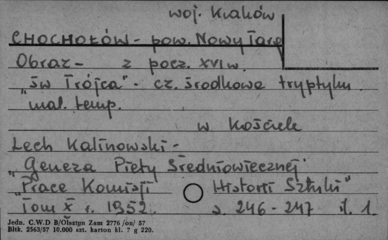 woj. Kraków
CHOCHOŁÓW - pow. Nowy Targ
Obraz - z pocz. XVI w.
"Św Trójca" - cz. środkowa tryptyku
mal. temp.
w Kościele
Lech Kalinowski -
"Geneza Piety Średniowiecznej"
"Prace Komisji Historii Sztuki"
Tom X r. 1952. s. 246-247 il. 1.
Jedn. C.W.D B/Olsztyn Zam 2776 /on/ 57
Bltk. 2563/57 10.000 szt. karton kl. 7 g 220.